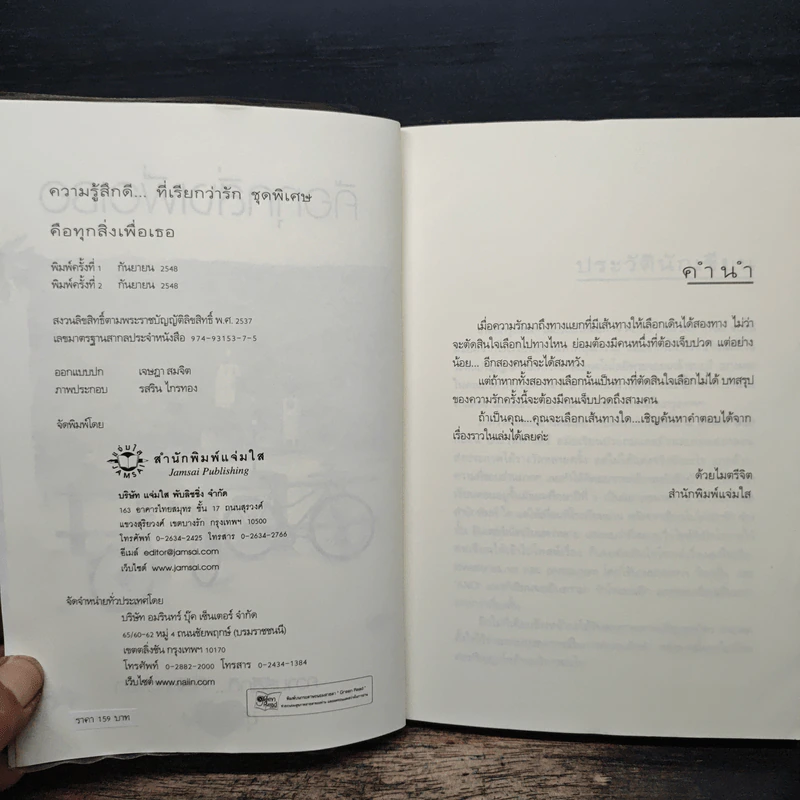 ความรู้สึกดี... ที่เรียกว่ารัก ชุดพิเศษ
คือทุกสิ่งเพื่อเธอ
พิมพ์ครั้งที่ 1 กันยายน 2548
พิมพ์ครั้งที่ 2 กันยายน 2548
สงวนลิขสิทธิ์ตามพระราชบัญญัติลิขสิทธิ์ พ.ศ. 2537
เลขมาตรฐานสากลประจำหนังสือ 974-93153-7-5
ออกแบบปก เจษฎา สมจิต
ภาพประกอบ รสริน ไกรทอง
จัดพิมพ์โดย
สำนักพิมพ์แจ่มใส
Jamsai Publishing
บริษัท แจ่มใส พับลิชชิ่ง จำกัด
163 อาคารไทยสมุทร ชั้น 17 ถนนสุรวงศ์
แขวงสุริยวงศ์ เขตบางรัก กรุงเทพฯ 10500
โทรศัพท์ 0-2634-2425 โทรสาร 0-2634-2766
อีเมล์ editor@jamsai.com
เว็บไซต์ www.jamsai.com
จัดจำหน่ายทั่วประเทศโดย
บริษัท อมรินทร์ บุ๊ค เซ็นเตอร์ จำกัด
65/60-62 หมู่ 4 ถนนชัยพฤกษ์ (บรมราชชนนี)
เขตตลิ่งชัน กรุงเทพฯ 10170
โทรศัพท์ 0-2882-2000 โทรสาร 0-2434-1384
เว็บไซต์ www.naiin.com
ราคา 159 บาท
คำนำ
เมื่อความรักมาถึงทางแยกที่มีเส้นทางให้เลือกเดินได้สองทาง ไม่ว่า
จะตัดสินใจเลือกไปทางไหน ย่อมต้องมีคนหนึ่งที่ต้องเจ็บปวด แต่อย่าง
น้อย... อีกสองคนก็จะได้สมหวัง
แต่ถ้าหากทั้งสองทางเลือกนั้นเป็นทางที่ตัดสินใจเลือกไม่ได้ บทสรุป
ของความรักครั้งนี้จะต้องมีคนเจ็บปวดถึงสามคน
ถ้าเป็นคุณ...คุณจะเลือกเส้นทางใด...เชิญค้นหาคำตอบได้จาก
เรื่องราวในเล่มได้เลยค่ะ
ด้วยไมตรีจิต
สำนักพิมพ์แจ่มใส